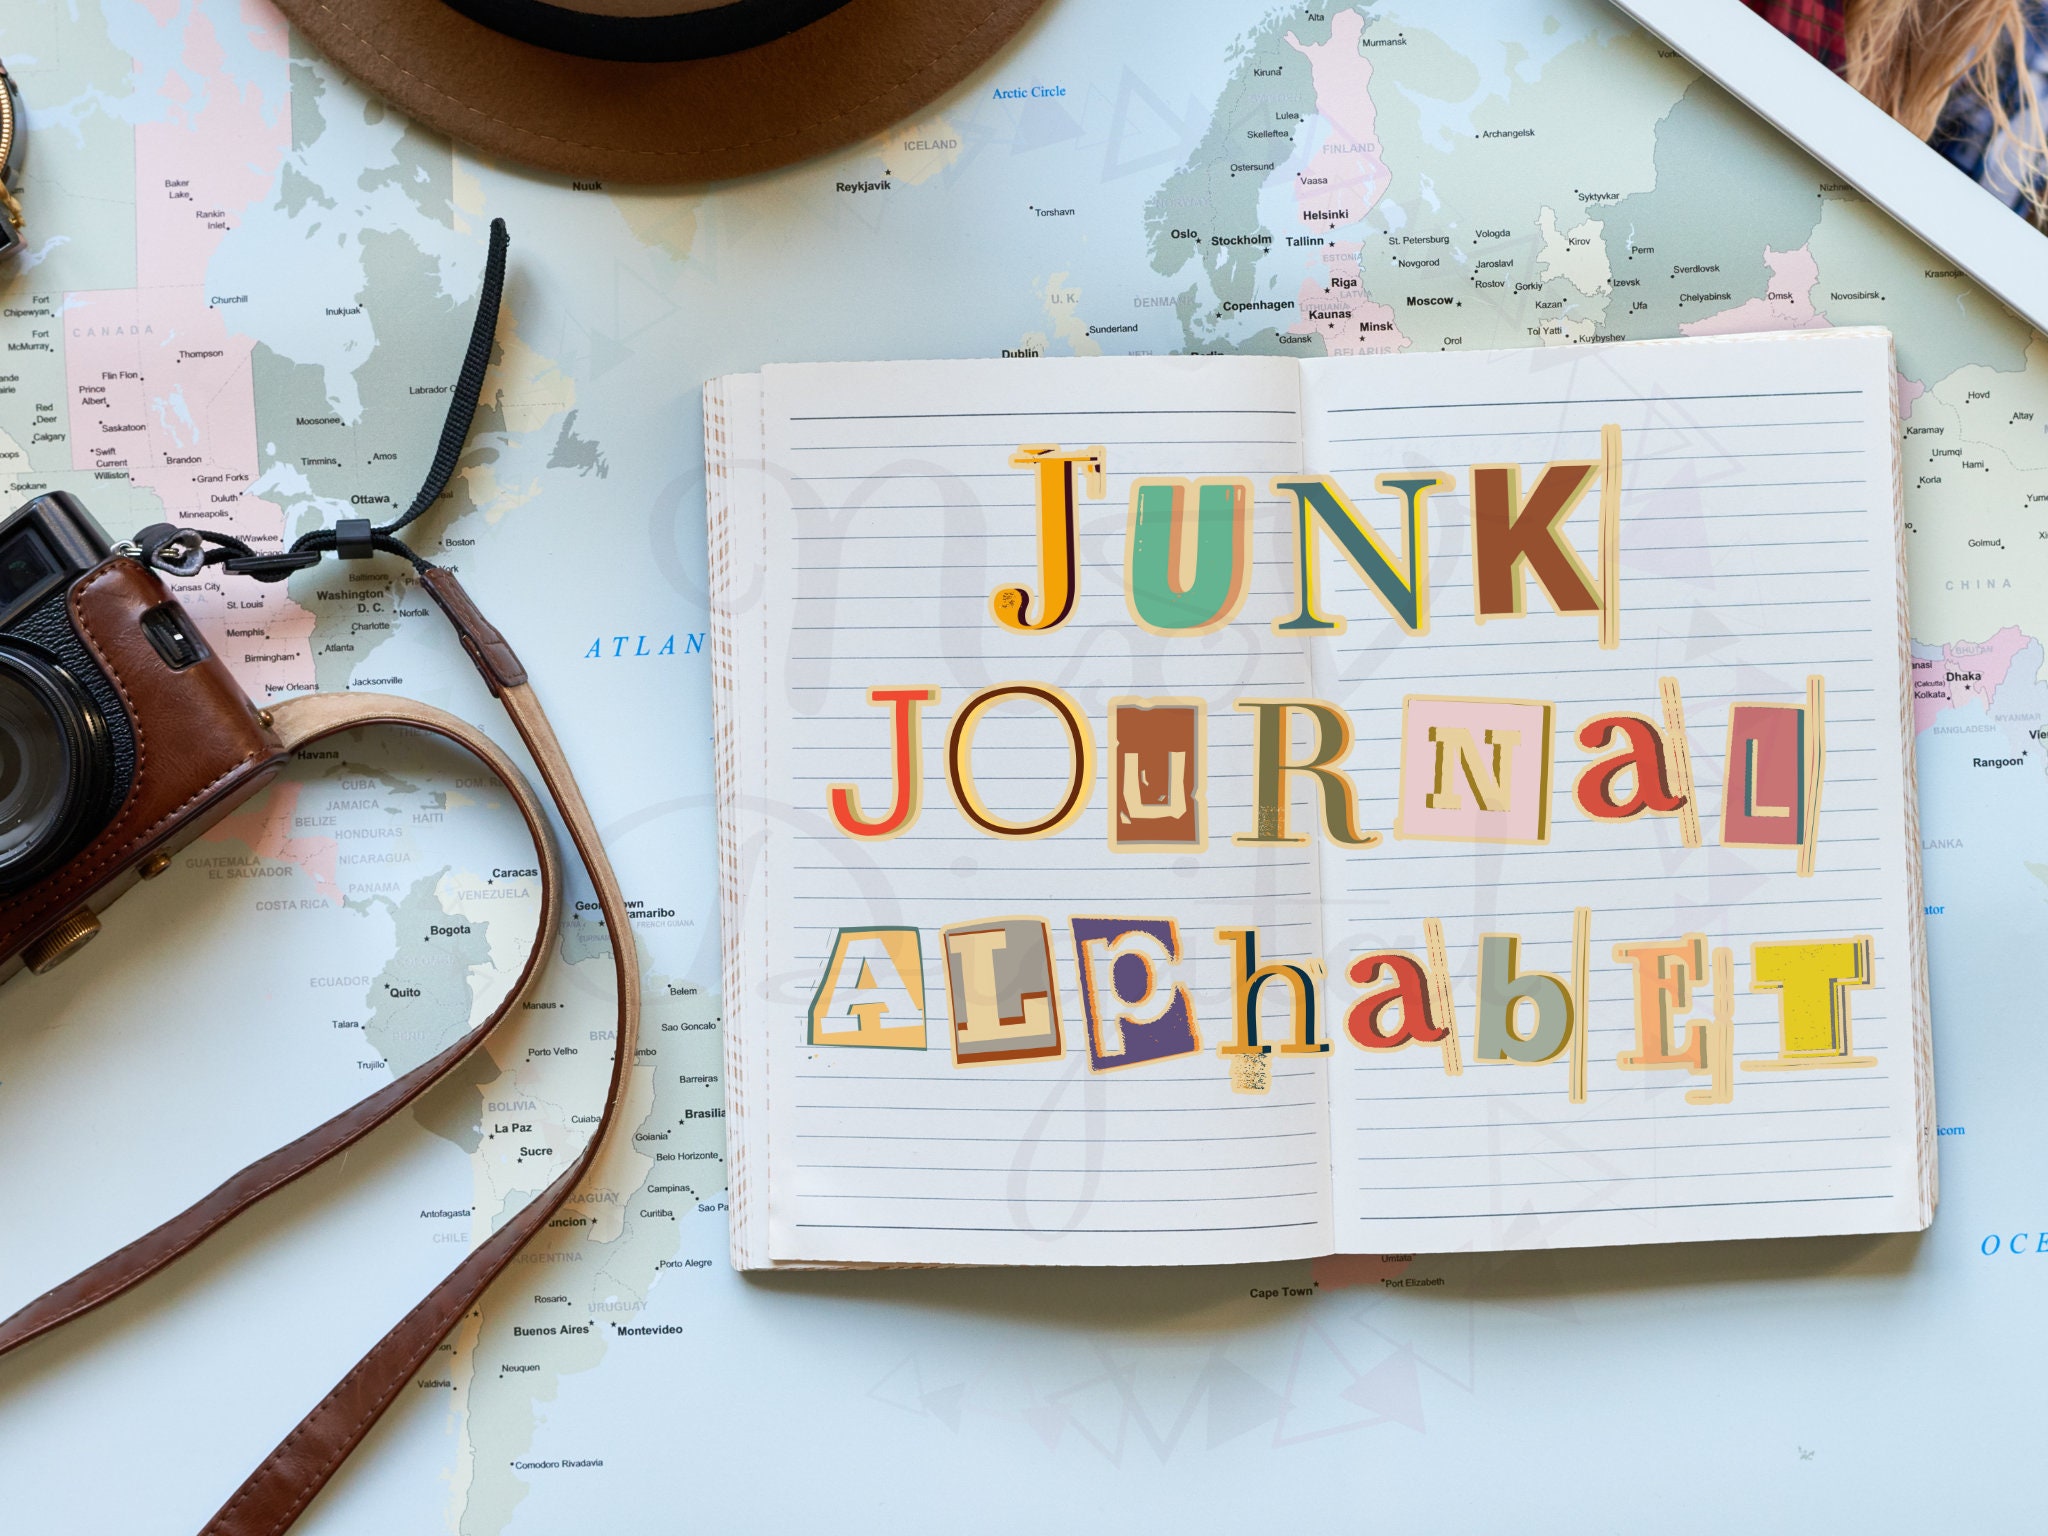 JUNK
JOuRNaL
ALphabET
Arctic Circle
Alta
Murmansk
Kiruna
Lulea
Skelleftea
Archangelsk
ICELAND
Reykjavik
Nuuk
Torshavn
FINLAND
Ostersund
Vaasa
Syktyvkar
Helsinki
Oslo
Stockholm
Tallinn
St. Petersburg
Vologda
Kirov
Perm
ESTONIA
Novgorod
Jaroslavl
Sverdlovsk
Riga
Rostov
Gorkiy
Izevsk
Omsk
Novosibirsk
U. K.
Copenhagen
Moscow
Kazan
Ufa
Chelyabinsk
Kaunas
Minsk
Sunderland
Gdansk
BELARUS
Orol
Kuybyshev
Dublin
Baker
Lake
Rankin
Inlet
Fort
Chipewyan
Churchill
Inukjuak
CANADA
Fort
McMurray
Thompson
Flin Flon
Prince
Albert
Red
Deer
Calgary
Saskatoon
Swift
Current
Moosonee
Timmins
Amos
Brandon
Williston
Grand Forks
Spokane
Duluth
Ottawa
Minneapolis
Boston
Kansas City
Baltimore
Washington
D. C.
Norfolk
St. Louis
Charlotte
Memphis
Atlanta
Birmingham
Jacksonville
New Orleans
ATLAN
Hovd
Altay
Karamay
Urumqi
Hami
Korla
Golmud
CHINA
BHUTAN
Dhaka
Kolkata
BANGLADESH
MYANMAR
Rangoon
Havana
CUBA
JAMAICA
BELIZE
HAITI
HONDURAS
GUATEMALA
NICARAGUA
EL SALVADOR
PANAMA
COSTA RICA
Caracas
VENEZUELA
FRENCH GUIANA
Bogota
ECUADOR
Quito
Manaus
Belem
Talara
Sao Goncalo
Trujillo
Porto Velho
Barreiras
BOLIVIA
La Paz
Cuiaba
Brasilia
Sucre
Goiania
Belo Horizonte
Campinas
Antofagasta
Curitiba
CHILE
ARGENTINA
Porto Alegre
Rosario
URUGUAY
Buenos Aires
Montevideo
Neuquen
Valdivia
Comodoro Rivadavia
Umtata
Cape Town
Port Elizabeth
OCE